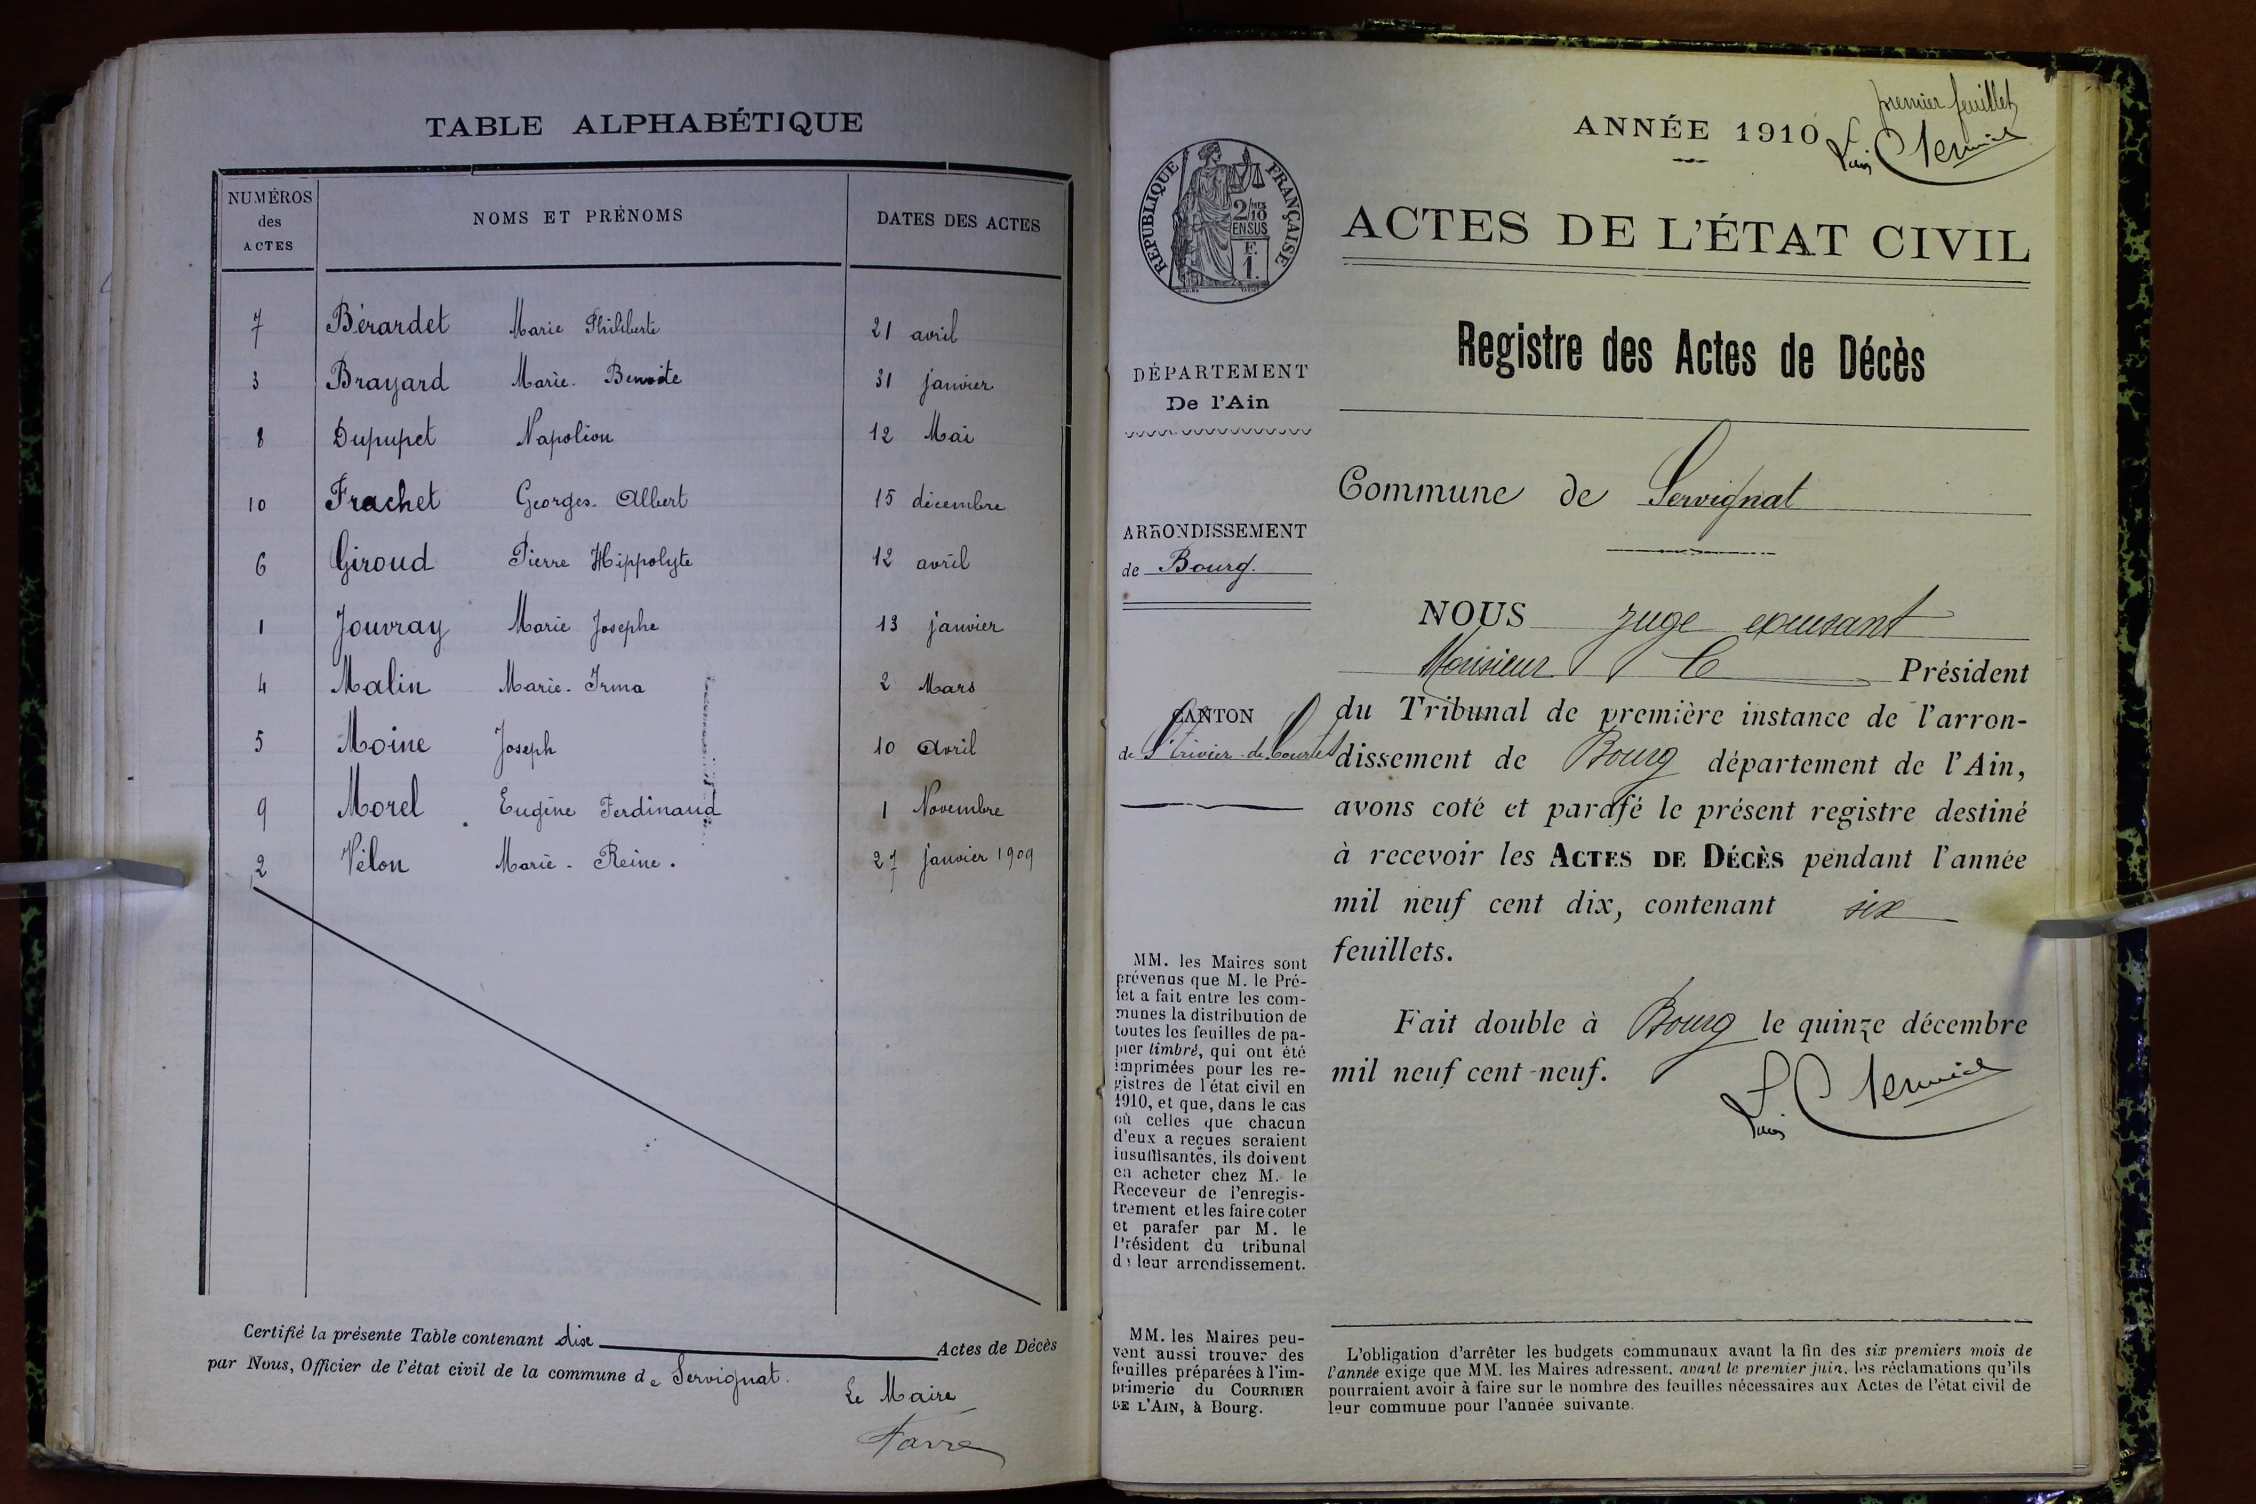 TABLE ALPHABÉTIQUE
NUMÉROS des ACTES NOMS ET PRÉNOMS DATES DES ACTES
7 Bérardet Marie Philiberte 21 avril
3 Brayard Marie-Benoite 31 janvier
8 Dupupet Napoléon 12 Mai
10 Frachet Georges-Albert 15 décembre
6 Giroud Pierre Hippolyte 12 avril
1 Jouvray Marie Josephe 13 janvier
4 Malin Marie-Irma 2 Mars
5 Moine Joseph 10 Avril
9 Morel Eugène Ferdinand 1 Novembre
2 Vélon Marie-Reine. 27 janvier 1909
Certifié la présente Table contenant dix Actes de Décès
par Nous, Officier de l'état civil de la commune de Servignat.
Le Maire
Favre
premier feuillet
ANNÉE 1910
RÉPUBLIQUE FRANÇAISE
2/10
EN SUS
F.
1.
ACTES DE L'ÉTAT CIVIL
Registre des Actes de Décès
DÉPARTEMENT
De l'Ain
Commune de Servignat
ARRONDISSEMENT
de Bourg.
CANTON
de St Trivier-de-Courtes
NOUS juge
Monsieur Président
du Tribunal de première instance de l'arron-
dissement de Bourg département de l'Ain,
avons coté et parafé le présent registre destiné
à recevoir les ACTES DE DÉCÈS pendant l'année
mil neuf cent dix, contenant six
feuillets.
Fait double à Bourg le quinze décembre
mil neuf cent-neuf.
MM. les Maires sont
prévenus que M. le Pré-
fet a fait entre les com-
munes la distribution de
toutes les feuilles de pa-
pier timbré, qui ont été
imprimées pour les re-
gistres de l'état civil en
1910, et que, dans le cas
où celles que chacun
d'eux a reçues seraient
insuffisantes, ils doivent
en acheter chez M. le
Receveur de l'enregis-
trement et les faire coter
et parafer par M. le
Président du tribunal
de leur arrondissement.
MM. les Maires peu-
vent aussi trouver des
feuilles préparées à l'im-
primerie du COURRIER
DE L'AIN, à Bourg.
L'obligation d'arrêter les budgets communaux avant la fin des six premiers mois de
l'année exige que MM. les Maires adressent, avant le premier juin, les réclamations qu'ils
pourraient avoir à faire sur le nombre des feuilles nécessaires aux Actes de l'état civil de
leur commune pour l'année suivante.